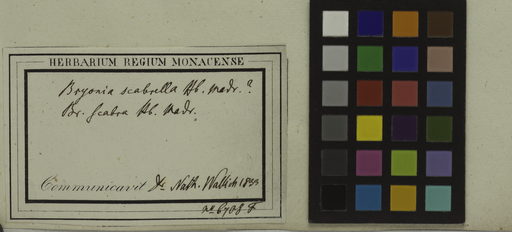 HERBARIUM REGIUM MONACENSE
Bryonia scabrella Hb. madr.?
Br. scabra Hb. Madr.
Communicavit Dr. Nath. Wallich 1833
no 6708